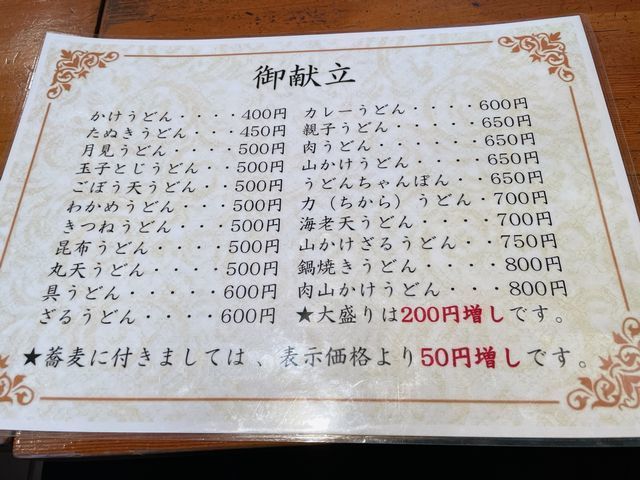 御献立
かけうどん・・・・400円
たぬきうどん・・・・450円
月見うどん・・・・500円
玉子とじうどん・・500円
ごぼう天うどん・・500円
わかめうどん・・・500円
きつねうどん・・・500円
昆布うどん・・・・500円
丸天うどん・・・・500円
具うどん・・・・・600円
ざるうどん・・・・600円
カレーうどん・・・・600円
親子うどん・・・・・650円
肉うどん・・・・・・650円
山かけうどん・・・・650円
うどんちゃんぽん・・650円
力（ちから）うどん・700円
海老天うどん・・・・700円
山かけざるうどん・・・750円
鍋焼きうどん・・・・800円
肉山かけうどん・・・800円
★大盛りは200円増しです。
★蕎麦に付きましては、表示価格より50円増しです。